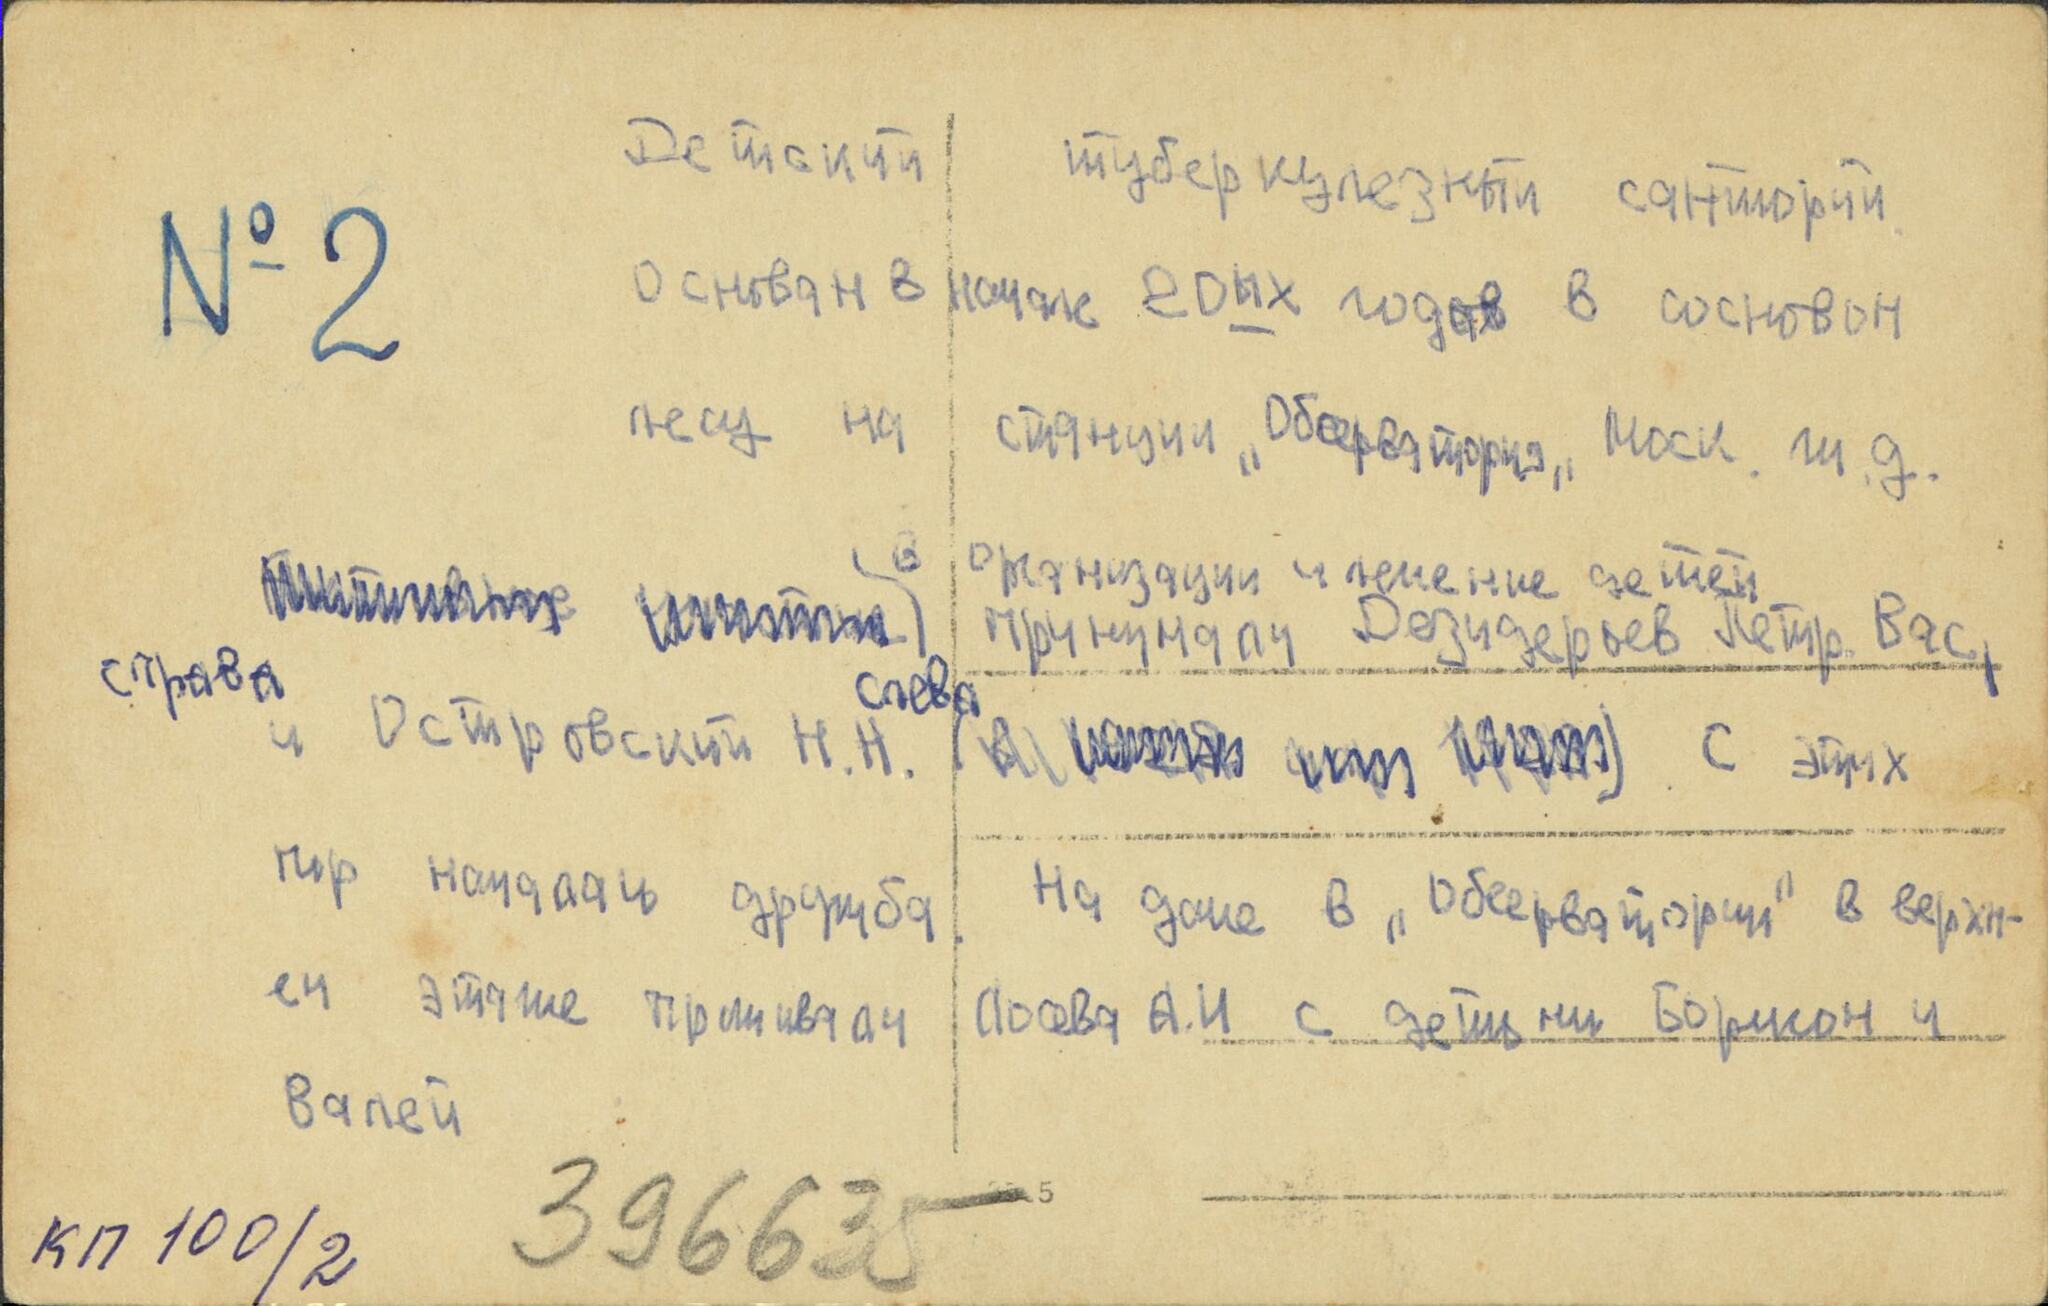 № 2
Детский туберкулезный санторий.
Основан в начале 20ых годов в сосновом
лесу на станции „Обсерватория„ Моск. ж.д.
в организации и лечение детей
принимали Дезидерьев Петр. Вас,
справа слева
и Островский Н.Н. С этих
пор началась дружба. На даче в „Обсерватории" в верхн-
ем этаже проживали Лосева А.И с детьми Борисом и
Валей
396635
КП 100/2